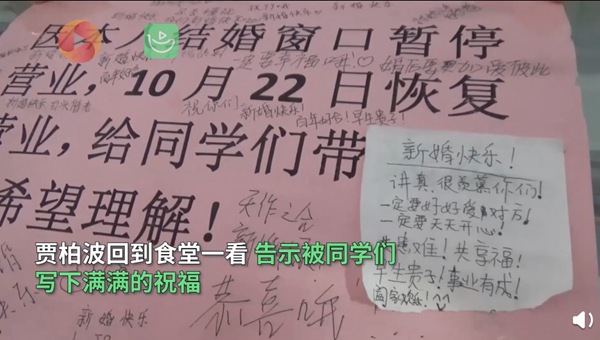 新婚快乐
因本人结婚窗口暂停
新婚快乐
一定要幸福哦!
婚后要更加爱彼此
营业,10月22日恢复
祝你们
新婚快乐!
百年好合!早生贵子!
营业,给同学们带
希望理解!
天作之合
恭喜哦
新婚快乐
新婚快乐!
讲真,很羡慕你们!
一定要好好爱对方!
一定要天天开心!
共患难!共享福!
早生贵子!事业有成!
阖家欢乐!
贾柏波回到食堂一看 告示被同学们
写下满满的祝福